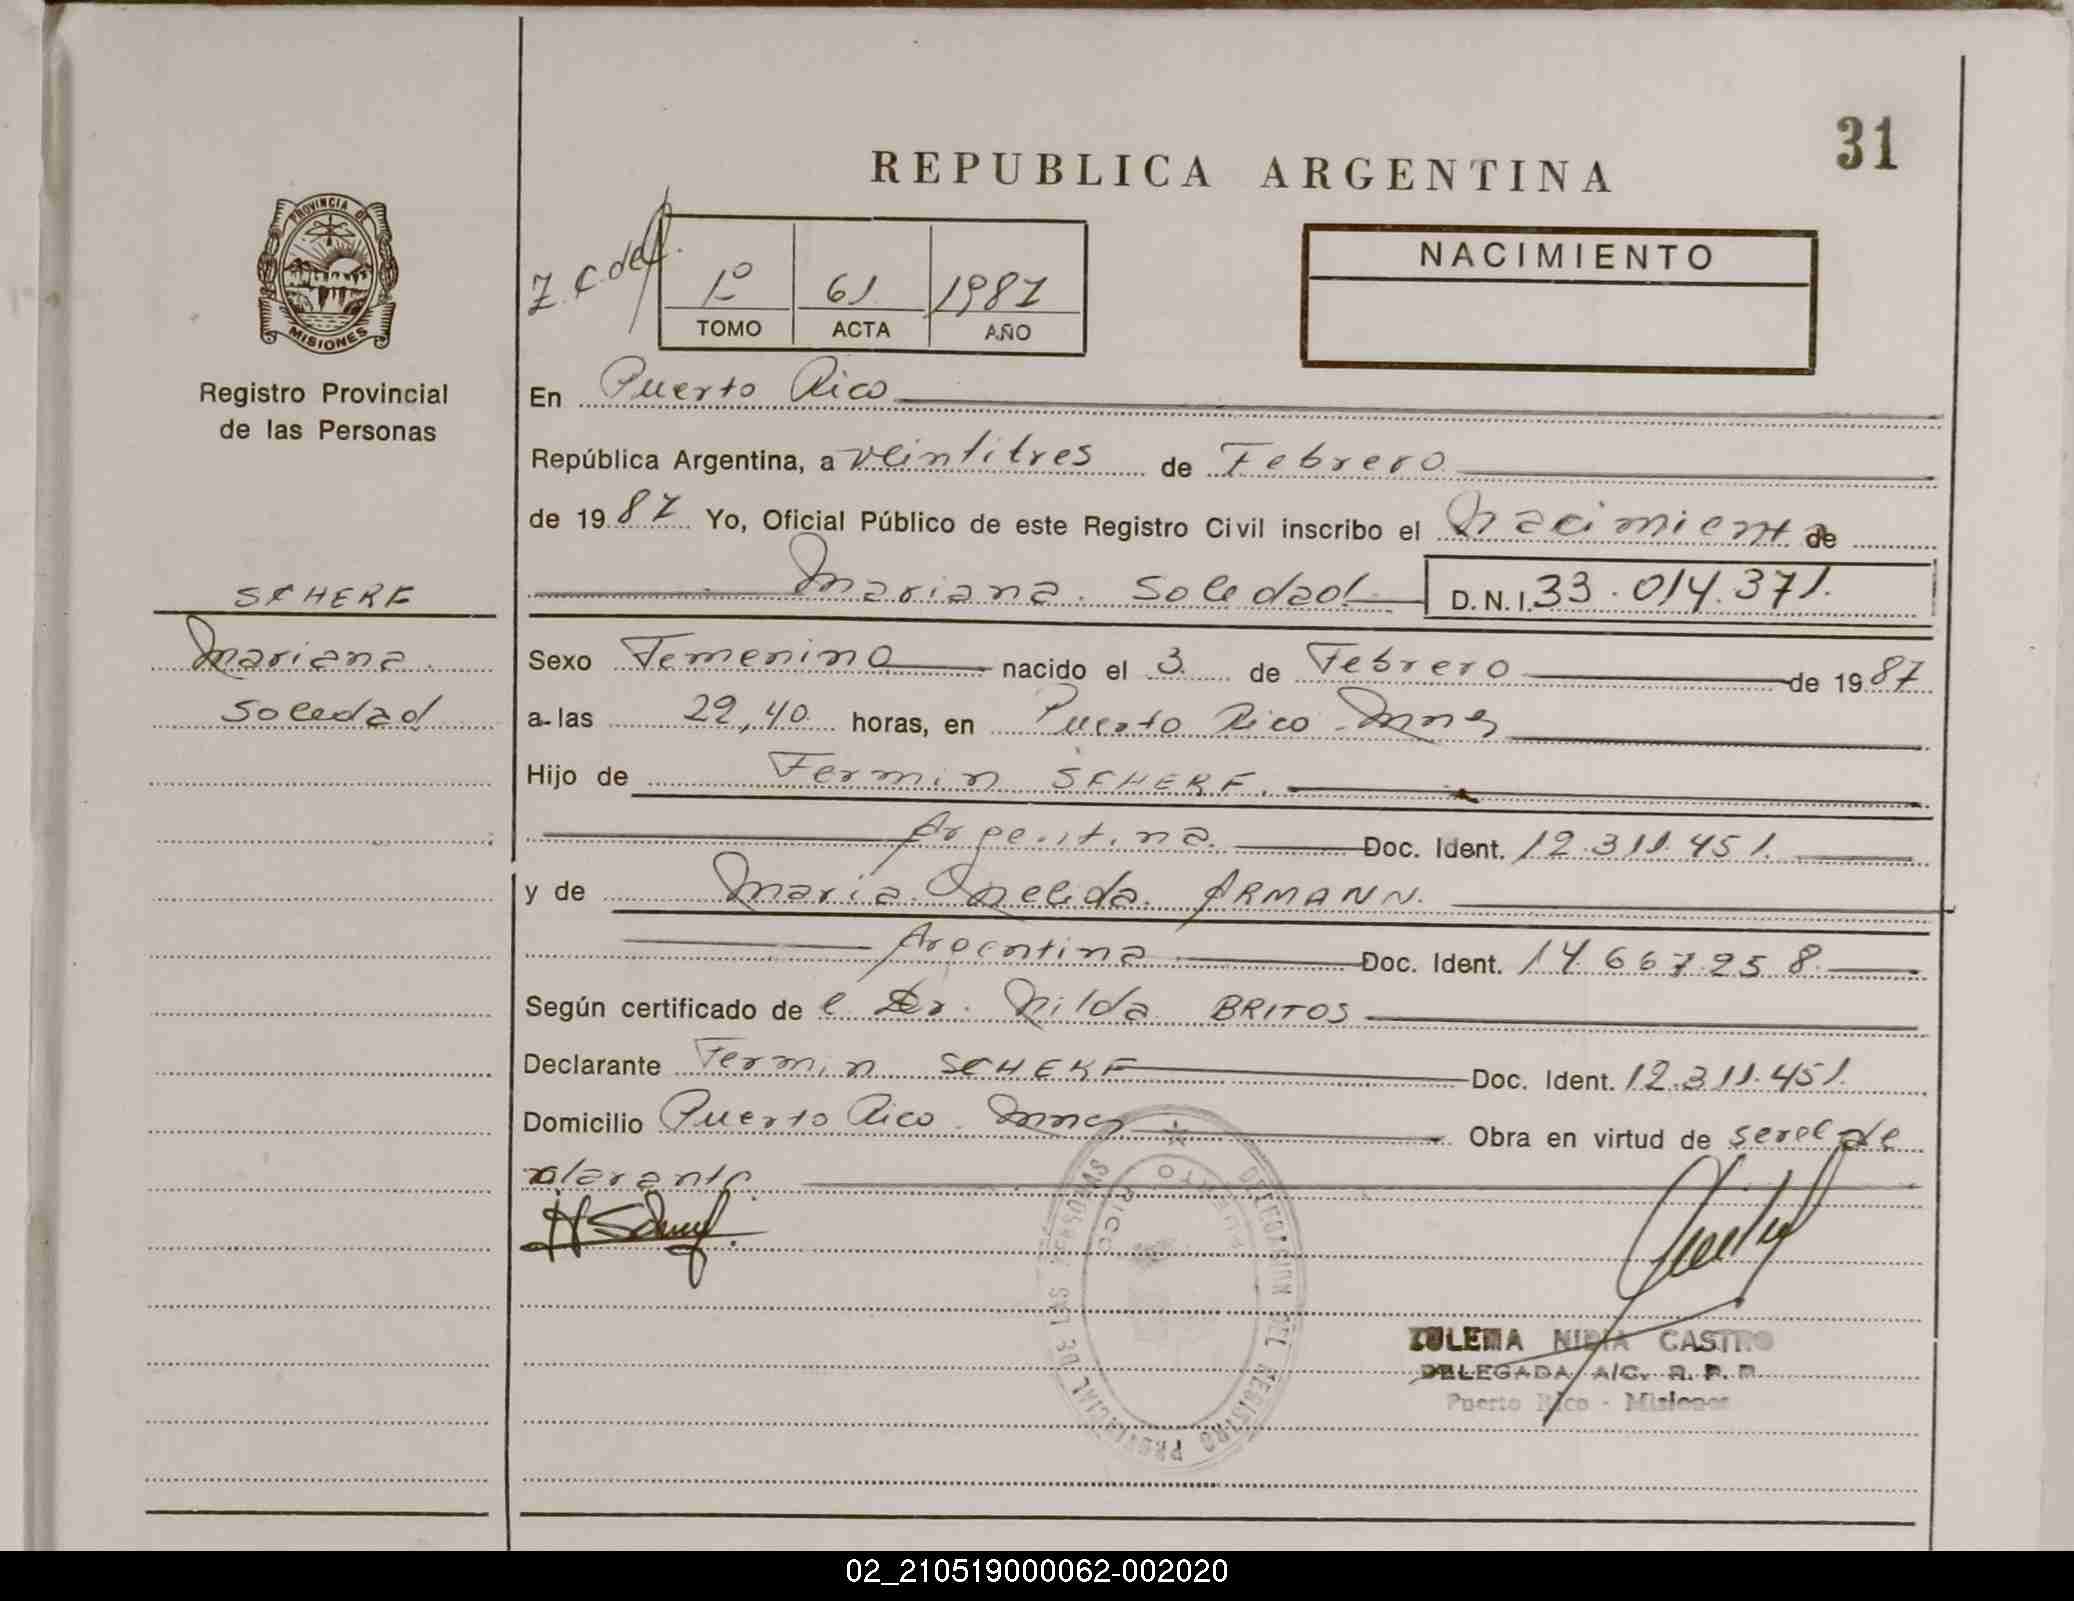 31
REPUBLICA ARGENTINA
PROVINCIA DE
MISIONES
Registro Provincial
de las Personas
1º 61 1987
TOMO ACTA AÑO
NACIMIENTO
En Puerto Rico
República Argentina, a veintitres de Febrero
de 1987 Yo, Oficial Público de este Registro Civil inscribo el Nacimient de
SCHERF
Mariana Soledad D.N.I. 33.014.371.
Mariana
Soledad
Sexo Femenino nacido el 3 de Febrero de 1987
a las 22,40 horas, en Puerto Rico Mnes
Hijo de Fermin SCHERF.
Argentina. Doc. Ident. 12.311.451.
y de Maria Nelida ARMANN.
Argentina Doc. Ident. 14.667.258
Según certificado de l Dr. Nilda BRITOS
Declarante Fermin SCHERF Doc. Ident. 12.311.451.
Domicilio Puerto Rico. Mnes Obra en virtud de ser el de
clarante.
DELEGACION DEL REGISTRO PROVINCIAL DE LAS PERSONAS
PUERTO RICO
ZULEMA NIDIA CASTRO
DELEGADA A/C. R. P. P.
Puerto Rico - Misiones
02_210519000062-002020